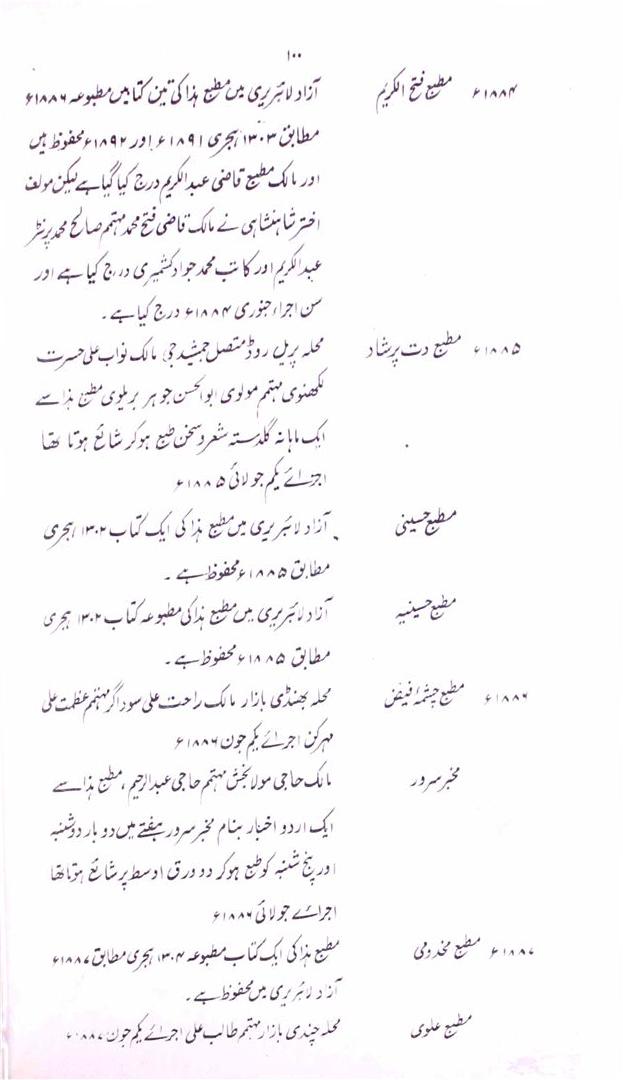 ۱۰۰
۱۸۸۴ء مطبع فتح الکریم آزاد لائبریری میں مطبع ہذا کی تین کتابیں مطبوعہ ۱۸۸۶ء
مطابق ۱۳۰۳ ہجری ۱۸۹۱ء اور ۱۸۹۲ء محفوظ ہیں
اور مالک مطبع قاضی عبدالکریم درج کیا گیا ہے لیکن مولف
اختر شاہنشاہی نے مالک قاضی فتح محمد مہتمم صالح محمد پرنٹر
عبدالکریم اور کاتب محمد جواد کشمیری درج کیا ہے اور
سن اجراء جنوری ۱۸۸۴ء درج کیا ہے۔
۱۸۸۵ء مطبع دت پرشاد محلہ پریل روڈ متصل جمشید جی مالک نواب علی حسرت
لکھنوی مہتمم مولوی ابوالحسن جوہر بریلوی مطبع ہذا سے
ایک ماہانہ گلدستہ شعر و سخن طبع ہو کر شائع ہوتا تھا
اجرائے یکم جولائی ۱۸۸۵ء
مطبع حسینی آزاد لائبریری میں مطبع ہذا کی ایک کتاب ۱۳۰۲ ہجری
مطابق ۱۸۸۵ء محفوظ ہے۔
مطبع حسینیہ آزاد لائبریری میں مطبع ہذا کی مطبوعہ کتاب ۱۳۰۲ ہجری
مطابق ۱۸۸۵ء محفوظ ہے۔
۱۸۸۶ء مطبع چشمۂ فیض محلہ بھنڈی بازار مالک راحت علی سوداگر مہتمم عظمت علی
مہرکن اجرائے یکم جون ۱۸۸۶ء
مخبر سرور مالک حاجی مولا بخش مہتمم حاجی عبدالرحیم، مطبع ہذا سے
ایک اردو اخبار بنام مخبر سرور ہفتے میں دو بار دوشنبہ
اور پنج شنبہ کو طبع ہو کر دو ورق اوسط پر شائع ہوتا تھا
اجرائے جولائی ۱۸۸۶ء
۱۸۸۷ء مطبع مخدومی مطبع ہذا کی ایک کتاب مطبوعہ ۱۳۰۴ ہجری مطابق ۱۸۸۷ء
آزاد لائبریری میں محفوظ ہے۔
مطبع علوی محلہ چندی بازار مہتمم طالب علی اجرائے یکم جون ۱۸۸۷ء